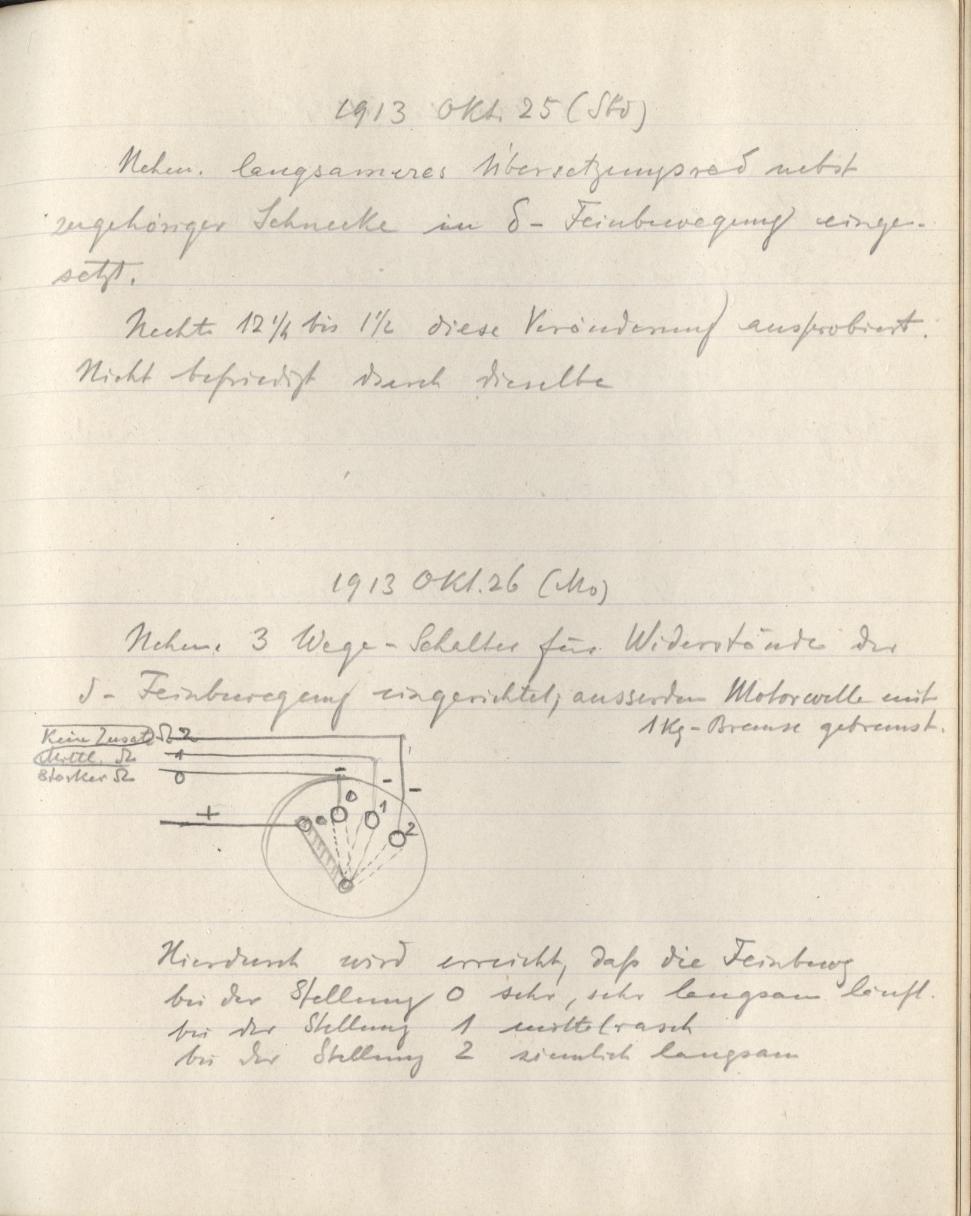 1913 Okt. 25 (Sto)
Nchm. langsameres Übersetzungsrad nebst
zugehöriger Schnecke in δ - Feinbewegung einge-
setzt.
Nachts 12 1/4 bis 1 1/2 diese Veränderung ausprobiert.
Nicht befriedigt durch dieselbe
1913 Okt. 26 (Mo)
Nchm. 3 Wege - Schalter für Widerstände der
δ - Feinbewegung eingerichtet; ausserdem Motorwelle mit
1 Kg - Bremse gebremst.
Keine Zusatz Ω 2
Mittl. Ω 1
Starker Ω 0
+ - - -
0 1 2
Hierdurch wird erreicht, daß die Feinbewg
bei der Stellung 0 sehr, sehr langsam läuft.
bei der Stellung 1 mittelrasch
bei der Stellung 2 ziemlich langsam